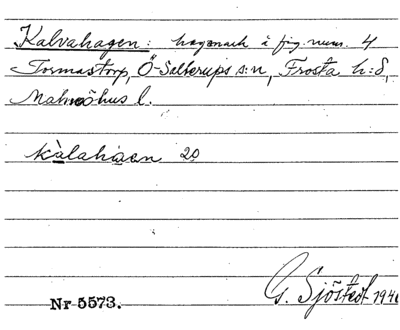 Kalvahagen: hagmark å fig. num. 4
Tormastorp, Ö-Sallerups s:n, Frosta h:d,
Malmöhus l.
kàlahaen 20
G. Sjöstedt 194
Nr 5573.